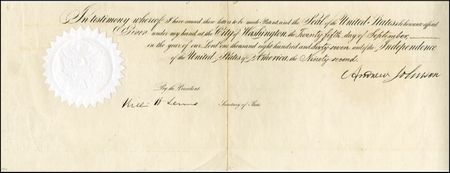 In testimony whereof I have caused these letters to be made Patent and the Seal of the United States to be hereunto affixed
Given under my hand at the City of Washington, the Twenty fifth day of September
in the year of our Lord one thousand eight hundred and sixty seven and of the Independence
of the United States of America, the Ninety second.
Andrew Johnson
By the President
Secretary of State